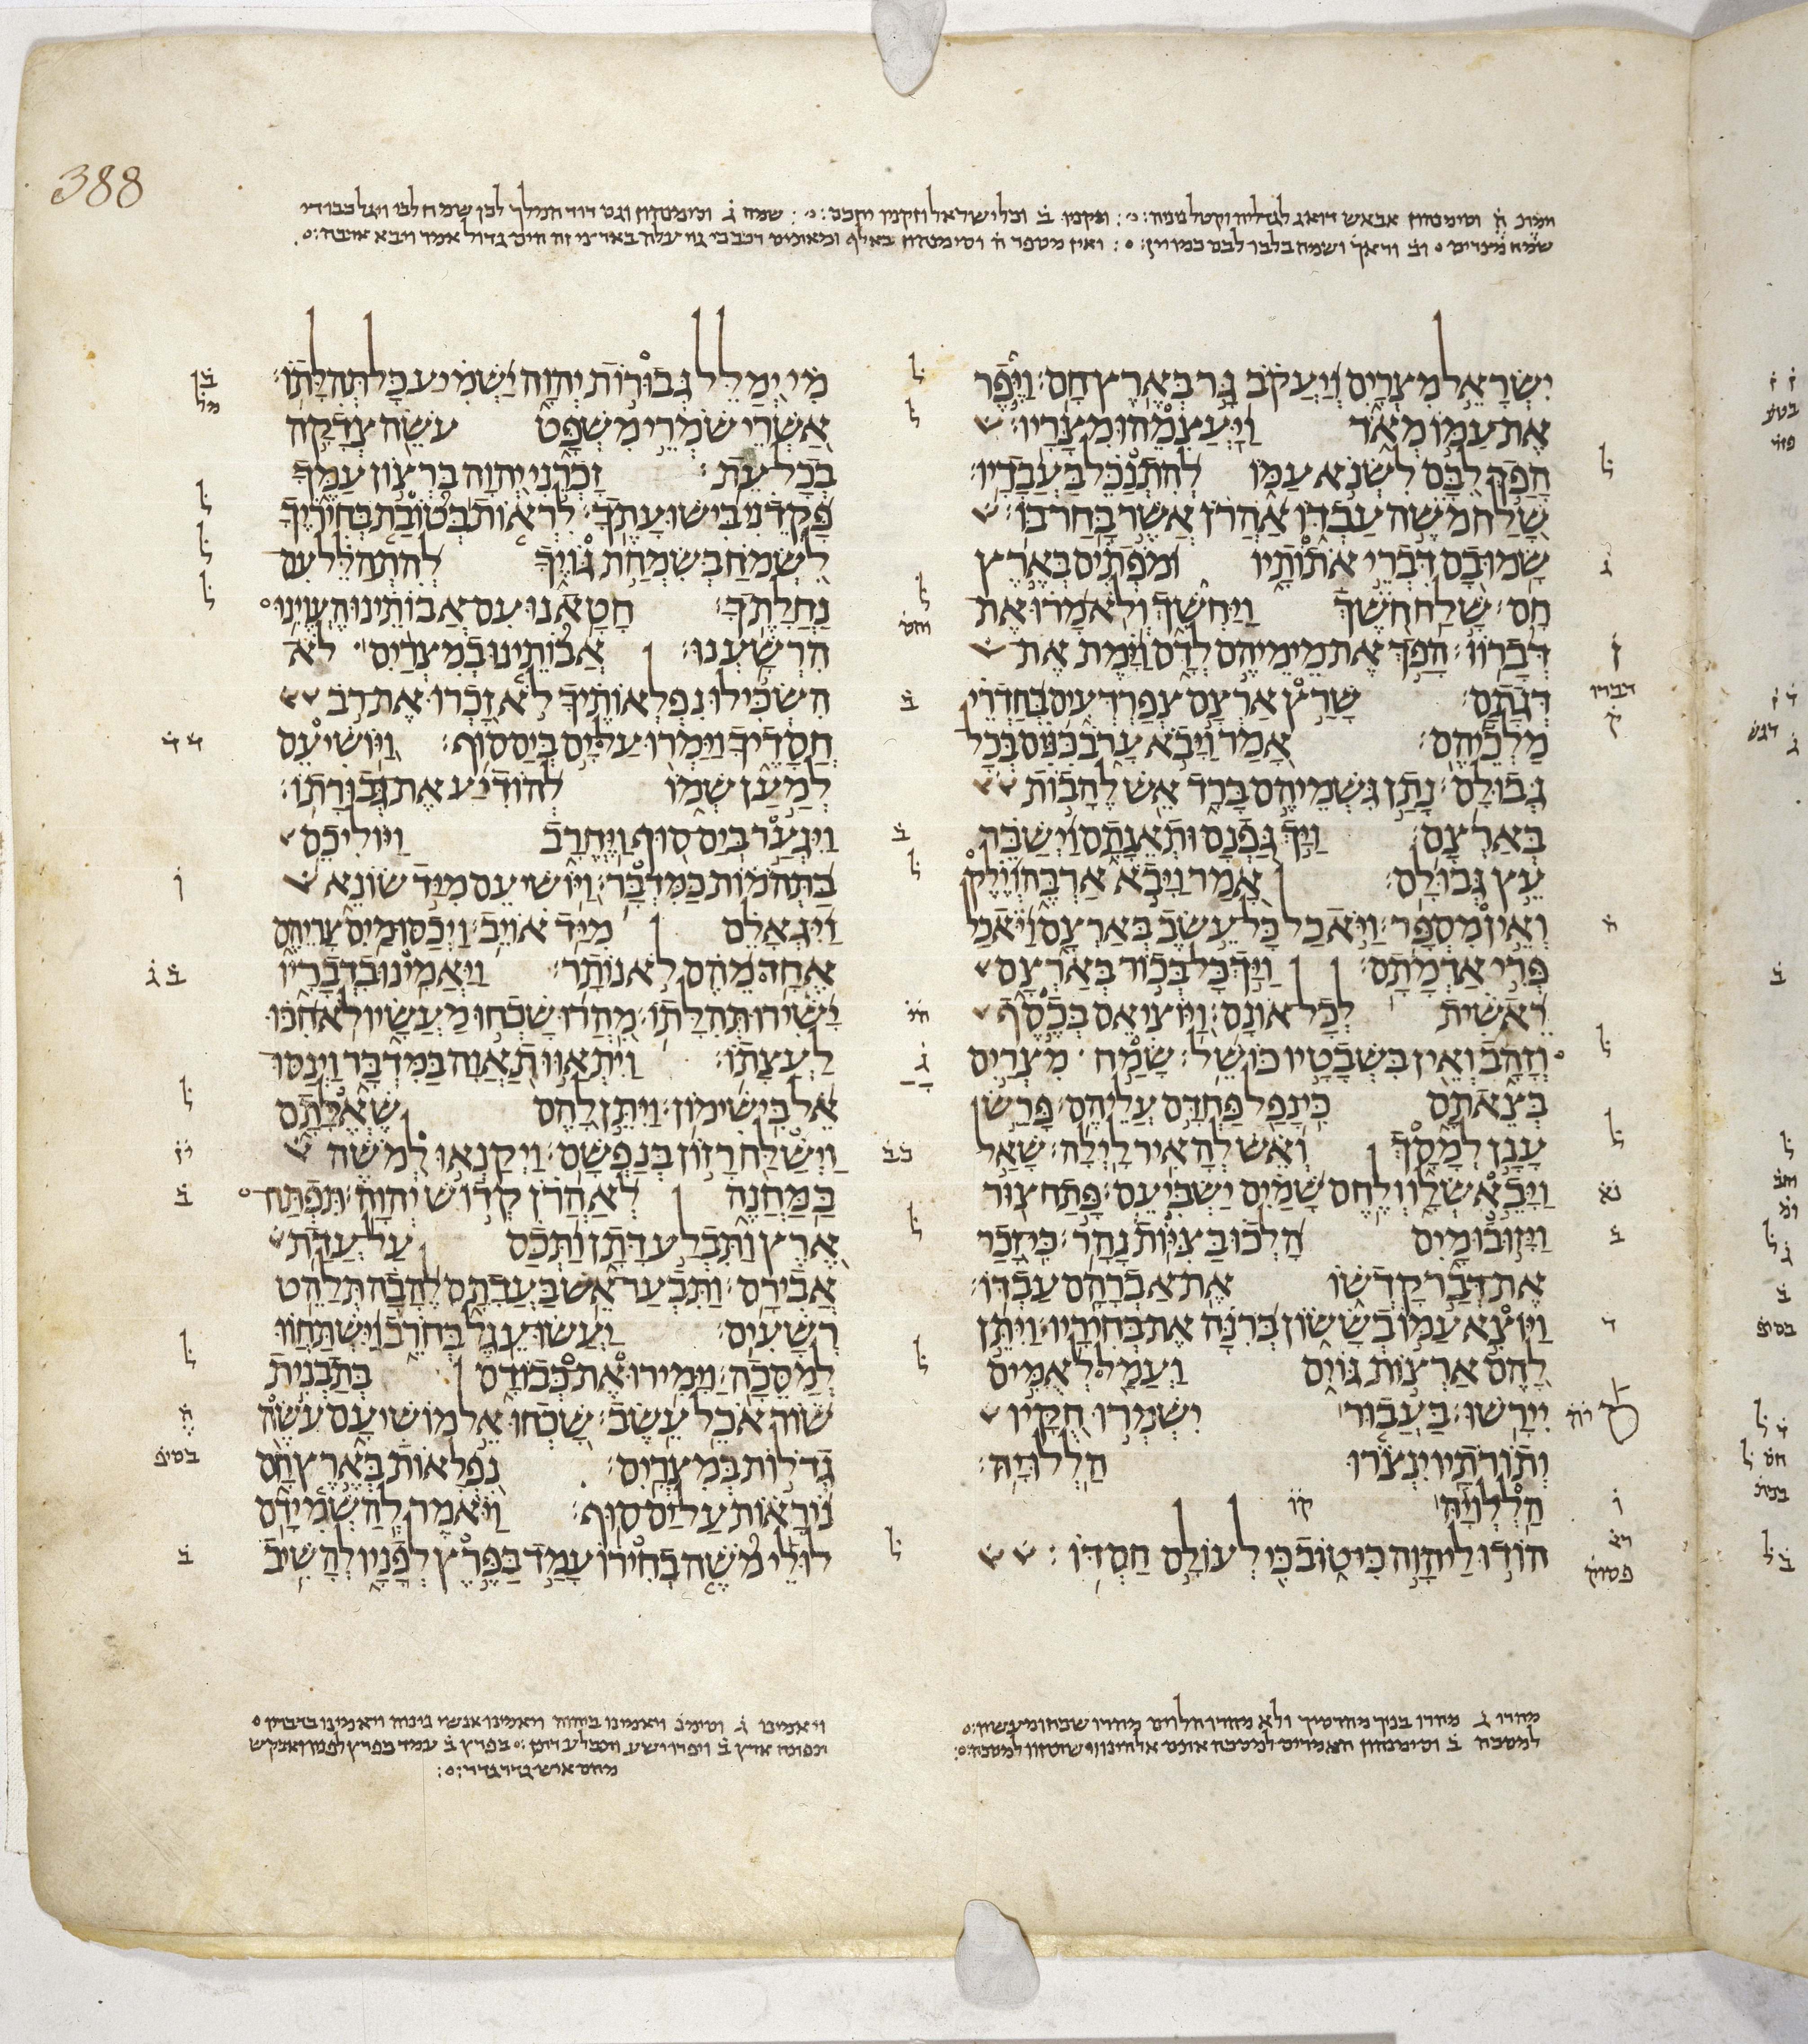 388
שמח ג וסימנהון וגם דוד המלך לכן שמח לבי ויגל כבודי
שמח מצרים וב וראך ושמח בלבו ואין מספר ח וסימנהון באלף ומאתים רכב כי גוי עלה באר מי זה הים גדול אמר ויבא ארבה
ישראל מצרים ויעקב גר בארץ חם׃ ויפר
את עמו מאד ויעצמהו מצריו׃
הפך לבם לשנא עמו להתנכל בעבדיו׃
שלח משה עבדו אהרן אשר בחר בו׃
שמו בם דברי אתותיו ומפתים בארץ
חם׃ שלח חשך ויחשך ולא מרו את
דבריו׃ הפך את מימיהם לדם וימת את
דגתם׃ שרץ ארצם צפרדעים בחדרי
מלכיהם׃ אמר ויבא ערב כנים בכל
גבולם׃ נתן גשמיהם ברד אש להבות
בארצם׃ ויך גפנם ותאנתם וישבר
עץ גבולם׃ אמר ויבא ארבה וילק
ואין מספר׃ ויאכל כל עשב בארצם ויאכל
פרי אדמתם׃ ויך כל בכור בארצם
ראשית לכל אונם׃ ויוציאם בכסף
וזהב ואין בשבטיו כושל׃ שמח מצרים
בצאתם כי נפל פחדם עליהם׃ פרש
ענן למסך ואש להאיר לילה׃ שאל
ויבא שלו ולחם שמים ישביעם׃ פתח צור
ויזובו מים הלכו בציות נהר׃ כי זכר
את דבר קדשו את אברהם עבדו׃
ויוצא עמו בששון ברנה את בחיריו׃ ויתן
להם ארצות גוים ועמל לאמים
יירשו׃ בעבור ישמרו חקיו
ותורתיו ינצרו הללויה׃
הללויה קו
הודו ליהוה כי טוב כי לעולם חסדו׃
מי ימלל גבורות יהוה ישמיע כל תהלתו׃
אשרי שמרי משפט עשה צדקה
בכל עת׃ זכרני יהוה ברצון עמך
פקדני בישועתך׃ לראות בטובת בחיריך
לשמח בשמחת גויך להתהלל עם
נחלתך׃ חטאנו עם אבותינו העוינו
הרשענו׃ אבותינו במצרים לא
השכילו נפלאותיך לא זכרו את רב
חסדיך וימרו על ים בים סוף׃ ויושיעם
למען שמו להודיע את גבורתו׃
ויגער בים סוף ויחרב ויוליכם
בתהמות כמדבר׃ ויושיעם מיד שונא
ויגאלם מיד אויב׃ ויכסו מים צריהם
אחד מהם לא נותר׃ ויאמינו בדבריו
ישירו תהלתו׃ מהרו שכחו מעשיו לא חכו
לעצתו׃ ויתאוו תאוה במדבר וינסו
אל בישימון׃ ויתן להם שאלתם
וישלח רזון בנפשם׃ ויקנאו למשה
במחנה לאהרן קדוש יהוה׃ תפתח
ארץ ותבלע דתן ותכס על עדת
אבירם׃ ותבער אש בעדתם להבה תלהט
רשעים׃ יעשו עגל בחרב וישתחוו
למסכה׃ וימירו את כבודם בתבנית
שור אכל עשב׃ שכחו אל מושיעם עשה
גדלות במצרים׃ נפלאות בארץ חם
נוראות על ים סוף׃ ויאמר להשמידם
לולי משה בחירו עמד בפרץ לפניו להשיב
מהרו ג מהרו בניך מהרסיך ולא מהרו הלוים מהרו שכחו מעשיו
למסכה ב וסימנהון האמרים למסכה אתם אלהינו
ויאמינו ג וסימנ ויאמינו ביהוה ויאמינו אנשי נינוה ויאמינו בדבריו
תפתח ארץ ב ויפרו ישע ותבלע דתן בפרץ ב עמד בפרץ לפניו ואבקש
מהם איש גדר גדר